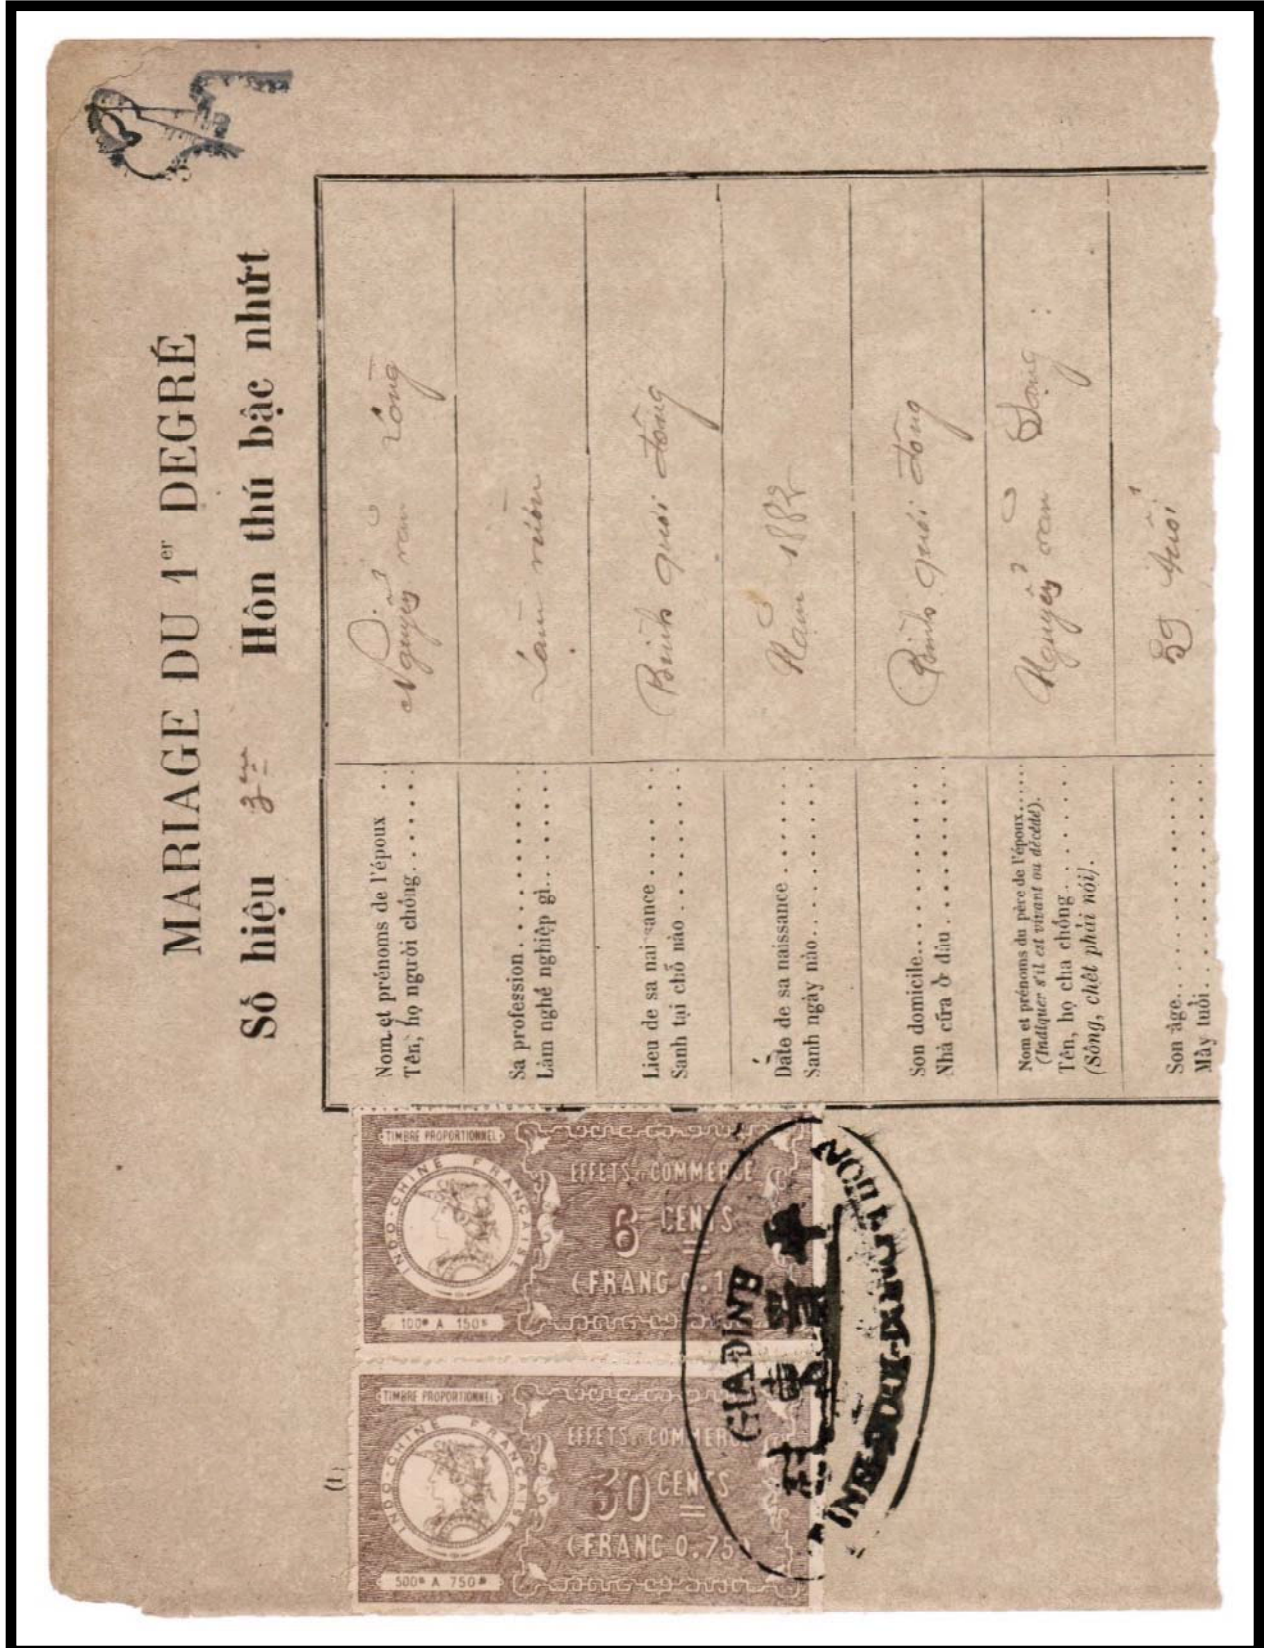 MARIAGE DU 1er DEGRÉ
Số hiệu 3ème Hôn thú bậc nhứt
Nom et prénoms de l'époux ..
Tên, họ người chồng......
Nguyễn văn Lòng
Sa profession..........
Làm nghề nghiệp gì.......
Làm vườn
Lieu de sa naissance .....
Sanh tại chỗ nào ........
Bình quới đông
Date de sa naissance .....
Sanh ngày nào.........
Năm 1882
Son domicile..........
Nhà cửa ở đâu ........
Bình quới đông
Nom et prénoms du père de l'époux.....
(Indiquer s'il est vivant ou décédé).
Tên, họ cha chồng.......
(Sống, chết phải nói).
Nguyễn văn
Son âge............
Mấy tuổi...........
59 tuổi
(1)
TIMBRE PROPORTIONNEL
INDO-CHINE FRANÇAISE
500F A 750F
EFFETS DE COMMERCE
30 CENTS
(FRANC 0.75)
TIMBRE PROPORTIONNEL
INDO-CHINE FRANÇAISE
100F A 150F
EFFETS DE COMMERCE
6 CENTS
(FRANC 0.1
GIADINH